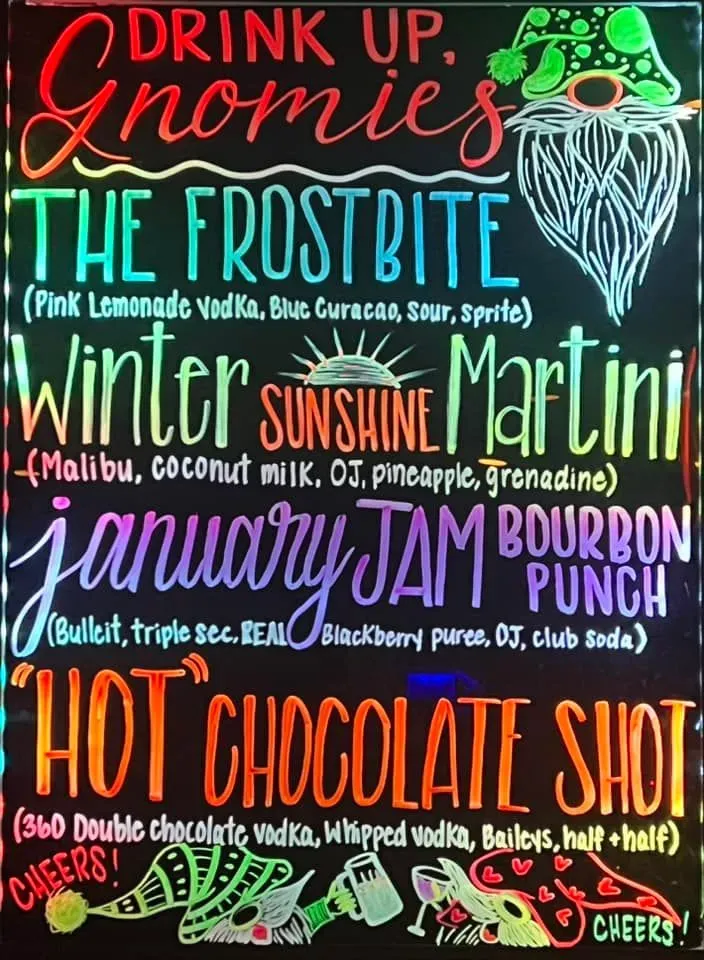 DRINK UP,
Gnomies
THE FROSTBITE
(Pink Lemonade vodka, Blue Curacao, sour, sprite)
Winter SUNSHINE Martini
(Malibu, coconut milk, OJ, pineapple, grenadine)
january JAM BOURBON PUNCH
(Bulleit, triple sec, REAL Blackberry puree, OJ, club soda)
"HOT" CHOCOLATE SHOT
(360 Double chocolate vodka, Whipped vodka, Baileys, half + half)
CHEERS!
CHEERS!